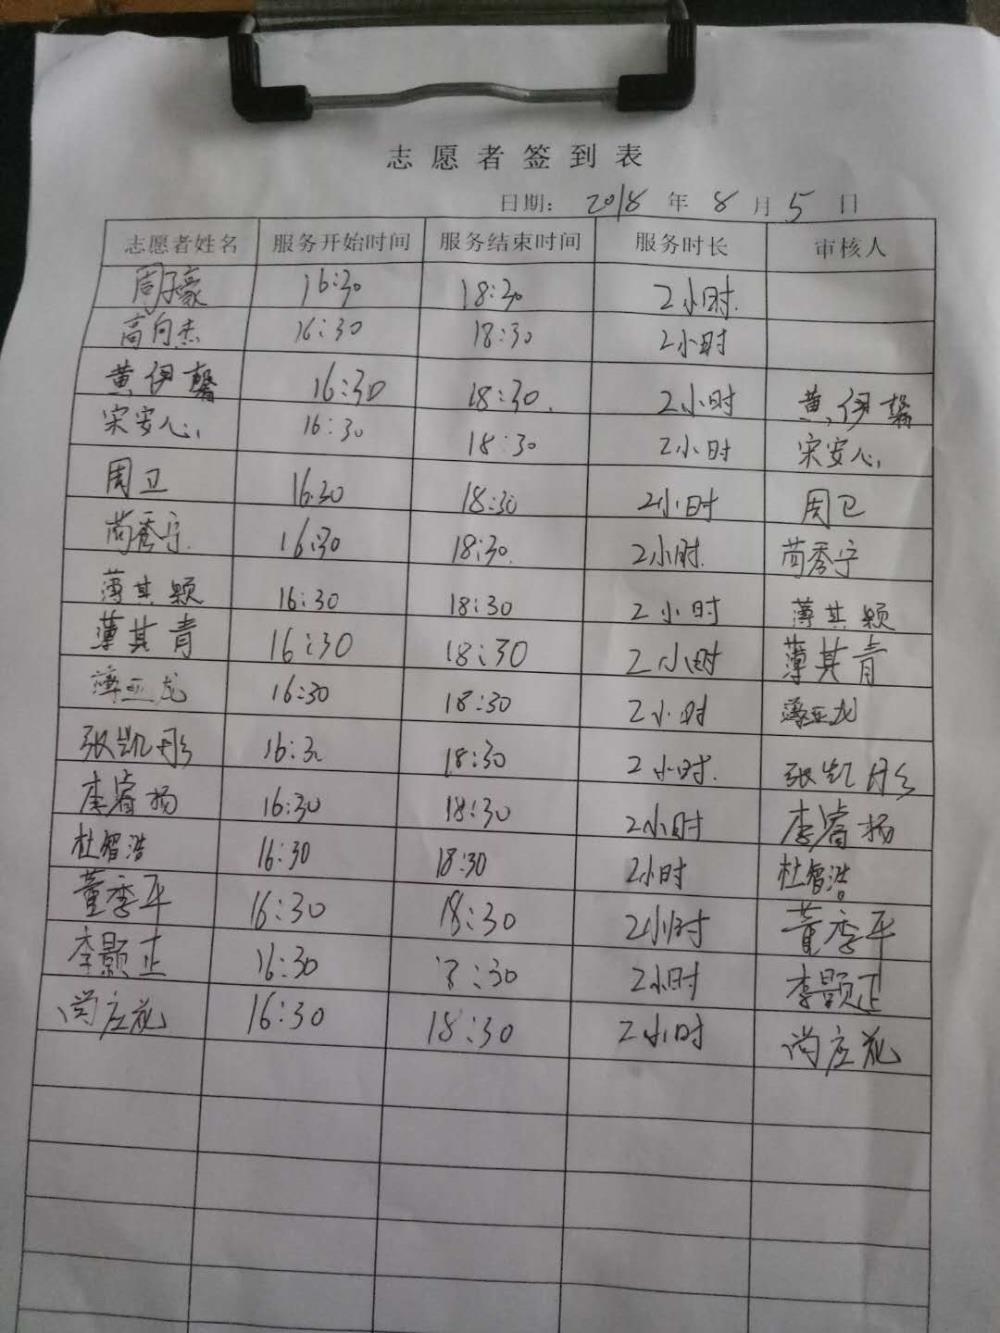 志愿者签到表
日期: 2018 年 8 月 5 日
志愿者姓名 服务开始时间 服务结束时间 服务时长 审核人
周子豪 16:30 18:30 2小时.
高向杰 16:30 18:30 2小时
黄伊馨 16:30 18:30. 2小时 黄伊馨
宋安心 16:30 18:30 2小时 宋安心
周卫 16:30 18:30 2小时 周卫
秀宁 16:30 18:30. 2小时. 秀宁
薄其颖 16:30 18:30 2小时 薄其颖
薄其青 16:30 18:30 2小时 薄其青
薄亚龙 16:30 18:30 2小时 薄亚龙
张凯彤 16:3 18:30 2小时. 张凯彤
李睿扬 16:30 18:30 2小时 李睿扬
杜智浩 16:30 18:30 2小时 杜智浩
董季平 16:30 18:30 2小时 董季平
李颢正 16:30 18:30 2小时 李颢正
尚应花 16:30 18:30 2小时 尚应花